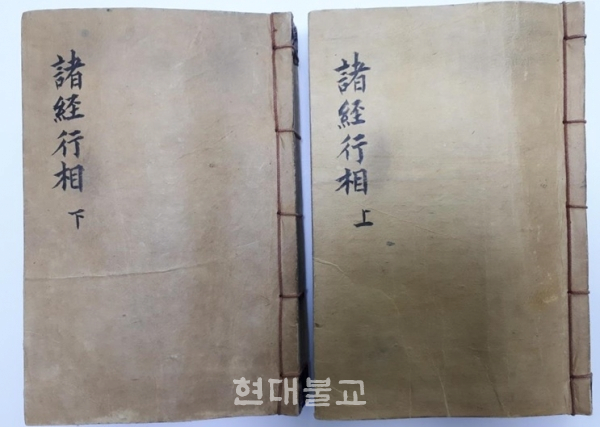 諸経行相
下
諸經行相
上
현대불교